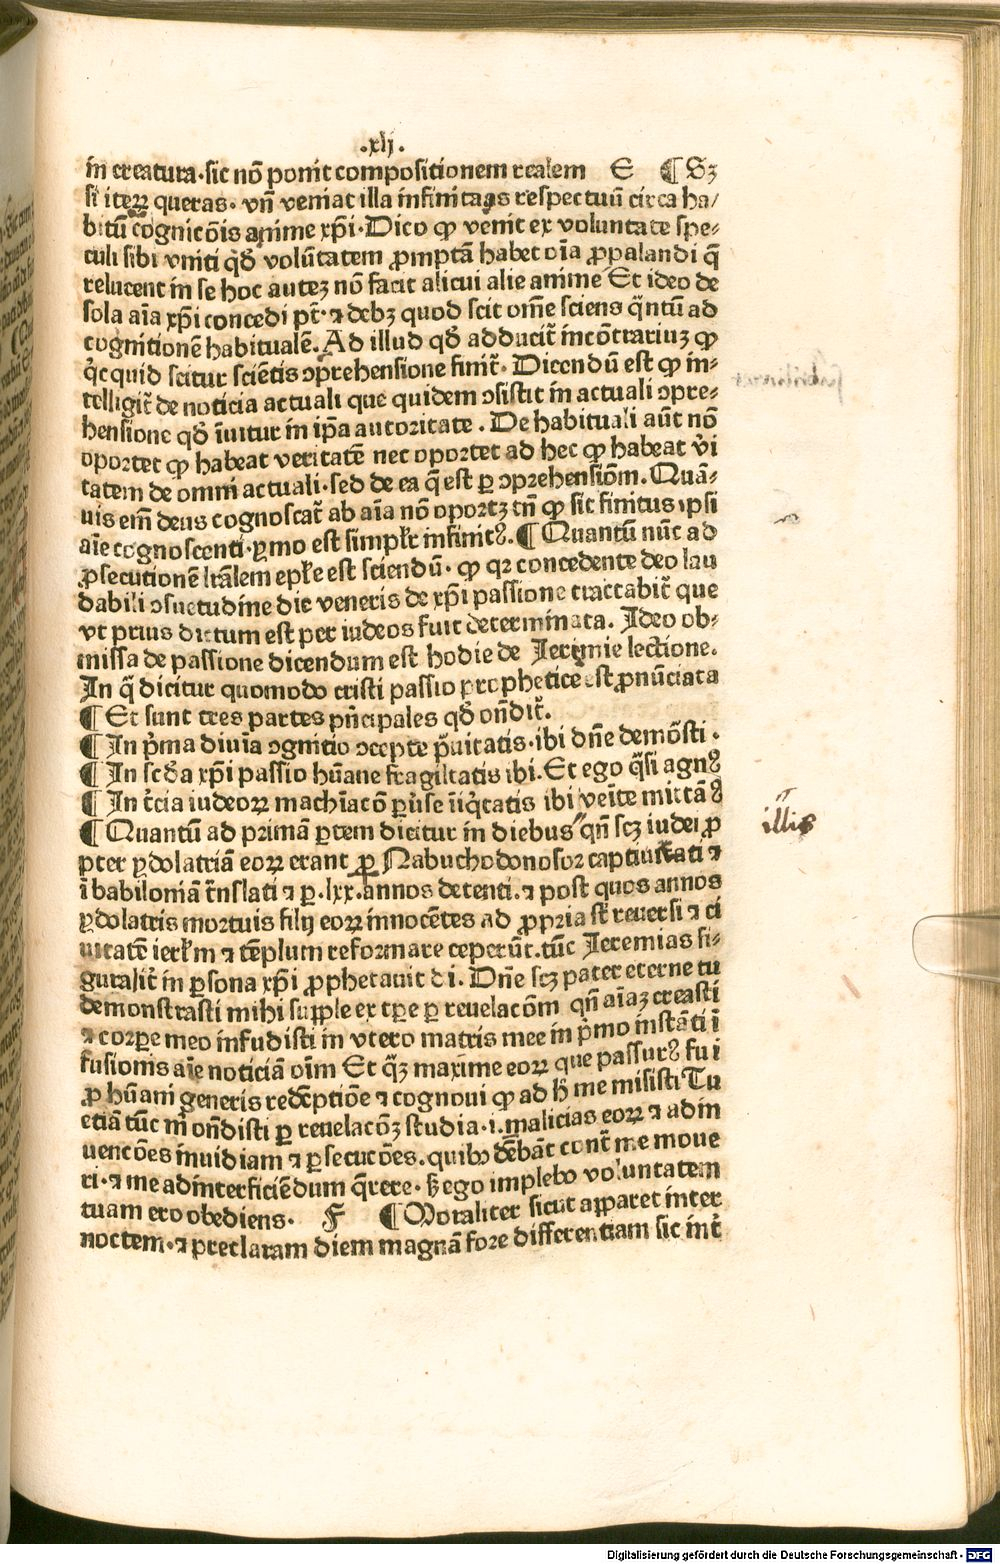 .xlj.
in creatura·sic nō ponit compositionem realem E ¶ Sꝫ
si iteꝝ queras· vñ veniat illa infinitas respectuū circa ha/
bitū cognicōis anime xp̄i·Dico ꝙ venit ex voluntate spe⸗
culi sibi vniti qḋ volūtatem ꝓmptā habet oīa ꝓpalandi q̄
relucent in se hoc auteꝫ nō facit alicui alie anime Et ideo de
sola aīa xp̄i concedi pt̄·⁊ debꝫ quod scit om̄e sciens q̄ntū ad
cognitionē habitualē. Ad illud qḋ adducit̄ incōtrariuꝫ ꝙ
q̇cquid scitur sciētis ɔprehensione finit̄· Dicendū est ꝙ in⸗
telligit̄ de noticia actuali que quidem ɔsistit in actuali ɔpre⸗
hensione qḋ īuitur in ip̄a autoritate . De habituali aūt nō
oportet ꝙ habeat veritatē nec oportet ad hec ꝙ habeat v̇i
tatem de omni actuali·sed de ea q̄ est ꝑ ɔprehensiōm. Quā⸗
uis em̄ deus cognoscat̄ ab aīa nō oportꝫ tn̄ ꝙ sic finitus ipsi
aīe cognoscenti·ẏmo est simpłr infinitꝰ.¶ Quantū nūc ad
ꝓsecutionē lr̄alem epłe est sciendū· ꝙ qꝛ concedente deo lau
dabili ɔsuetudine die veneris de xp̄i passione tractabit̄ que
vt prius dictum est per iudeos fuit determinata. Ideo ob⸗
missa de passione dicendum est hodie de Ieremie lectione.
In q̄ dicitur quomodo cristi passio prophetice est ꝓnūciata
¶ Et sunt tres partes pn̄cipales qḋ on̄dit̄.
¶ In p̄ma diuīa ɔgnitio ɔcepte p̄uitatis·ibi dn̄e demōsti ·
¶ In scḋa xp̄i passio hūane fragilitatis ibi. Et ego q̄si agnꝰ
¶ In t̄cia iudeoꝝ machīacō ꝑūse īiq̇tatis ibi veīte mittāꝰ
¶ Quantū ad primā ꝑtem dicitur in diebus qn̄ scꝫ iudei ꝓ
pter ẏdolatriā eoꝝ erant ꝑ Nabuchodonosor captiuati ⁊
ī babiloniā t̄nslati ⁊ ꝑ·lxx·annos detenti.⁊ post quos annos
ẏdolatris mortuis filij eoꝝ innocētes ad ꝓpria sł reuersi ⁊ ci
uitatē ierłm ⁊ tēplum reformare ceperūt.tūc Ieremias fi⸗
guralit̄ in ꝑsona xp̄i ꝓphetauit di. Dn̄e scꝫ pater eterne tu
demonstrasti mihi supple ex tꝑe ꝑ reuelacōm qn̄ aīaꝫ creasti
⁊ corꝑe meo infudisti in vtero matris mee in p̄mo instāti ī
fusionis aīe noticiā oīm Et q̄ꝫ maxime eoꝝ que passurꝰ fui
ꝓ hūani generis redēptiōe ⁊ cognoui ꝙ ad h̄ me misisti Tu
etiā tūc m̄ on̄disti ꝑ reuelacōꝫ studia·i.malicias eoꝝ ⁊ adin
uencōes inuidiam ⁊ ꝑsecucōes.quibꝰ dēbāt cont̄ me moue
ri·⁊ me adinterficiēdum q̄rere· h̄ ego implebo voluntatem
tuam ero obediens· F ¶ Moraliter sicut apparet inter
noctem·⁊ preclaram diem magnā fore differentiam sic int̄
illis
Digitalisierung gefördert durch die Deutsche Forschungsgemeinschaft - DFG